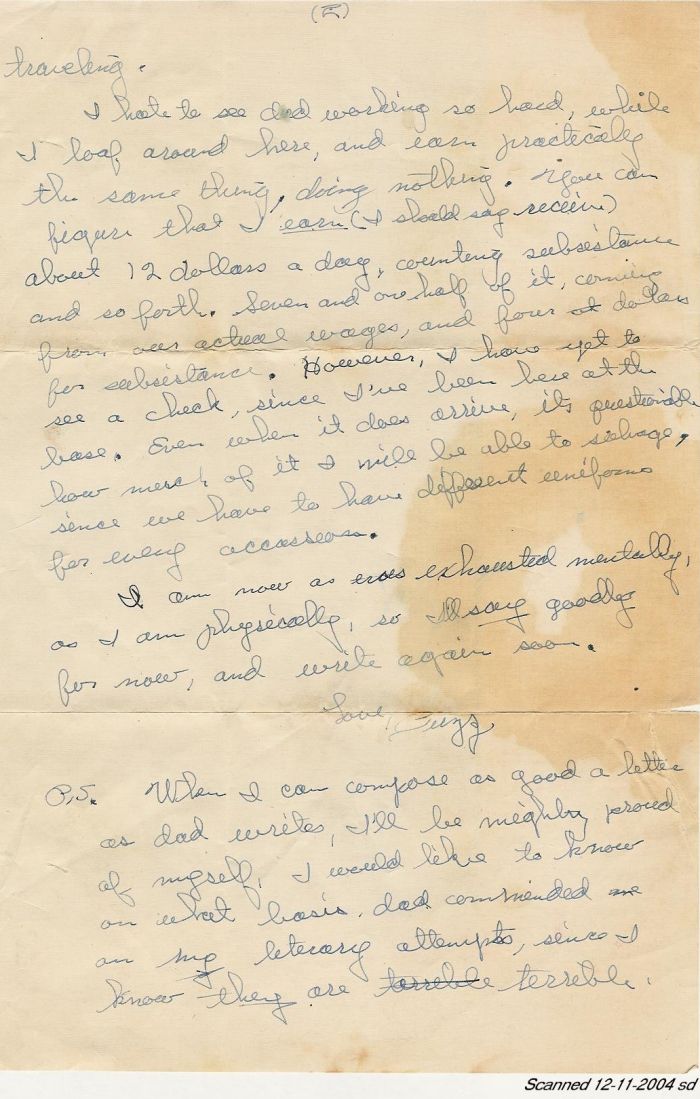 (2)
traveling.
I hate to see dad working so hard, while
I loaf around here, and earn practically
the same thing, doing nothing. You can
figure that I earn (I should say receive)
about 12 dollars a day, counting subsistance
and so forth. Seven and one half of it, coming
from our actual wages, and four dollars
for subsistance. However, I have yet to
see a check, since I've been here at the
base. Even when it does arrive, its questionable
how much of it I will be able to salvage,
since we have to have different uniforms
for every occasseon.
I am now as exhausted mentally,
as I am physically, so I'll say goodby
for now, and write again soon.
Love, Buzz
P.S. When I can compose as good a letter
as dad writes, I'll be mighty proud
of myself. I would like to know
on what basis, dad commended me
on my literary attempts, since I
know they are terrible terrible.
Scanned 12-11-2004 sd